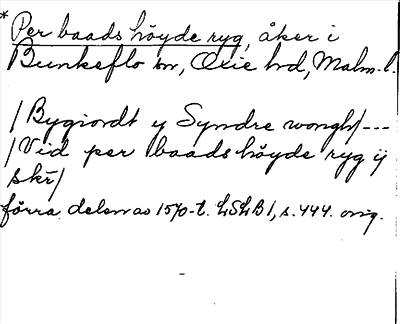 * Per baads höyde ryg, åker i
Bunkeflo sn, Oxie hd, Malm. l.
/Bygiordt y Syndre wongh/---
/Vid per baads höyde ryg ij
skr/
förra delen av 1570-t. LSLB 1, s. 444. orig.